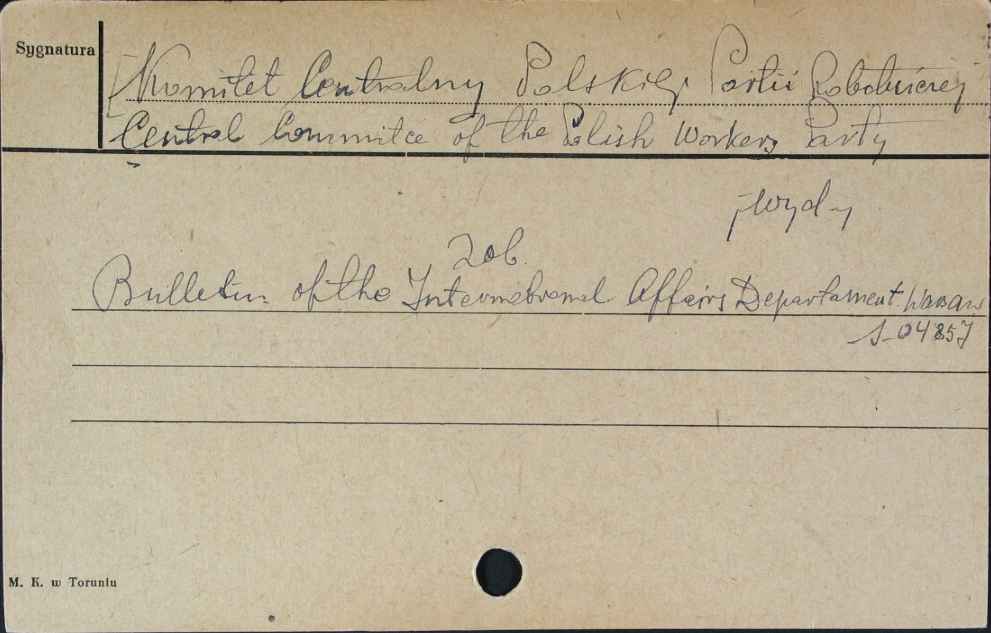 Sygnatura
[Komitet Centralny Polskiej Partii Robotniczej
Central Committee of the Polish Workers Party
[wyd-y
zob.
Bulletin of the International Affairs Departament. Warsaw
S-04857
M. K. w Toruniu